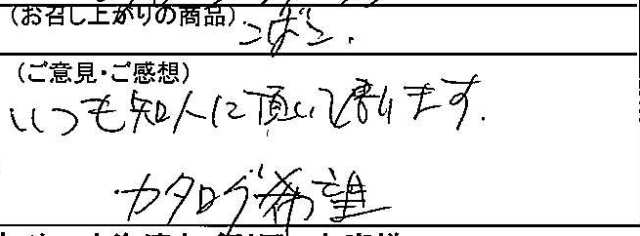 (お召し上がりの商品)
(ご意見・ご感想)
いつも知人に頂いて居ります.
カタログ希望